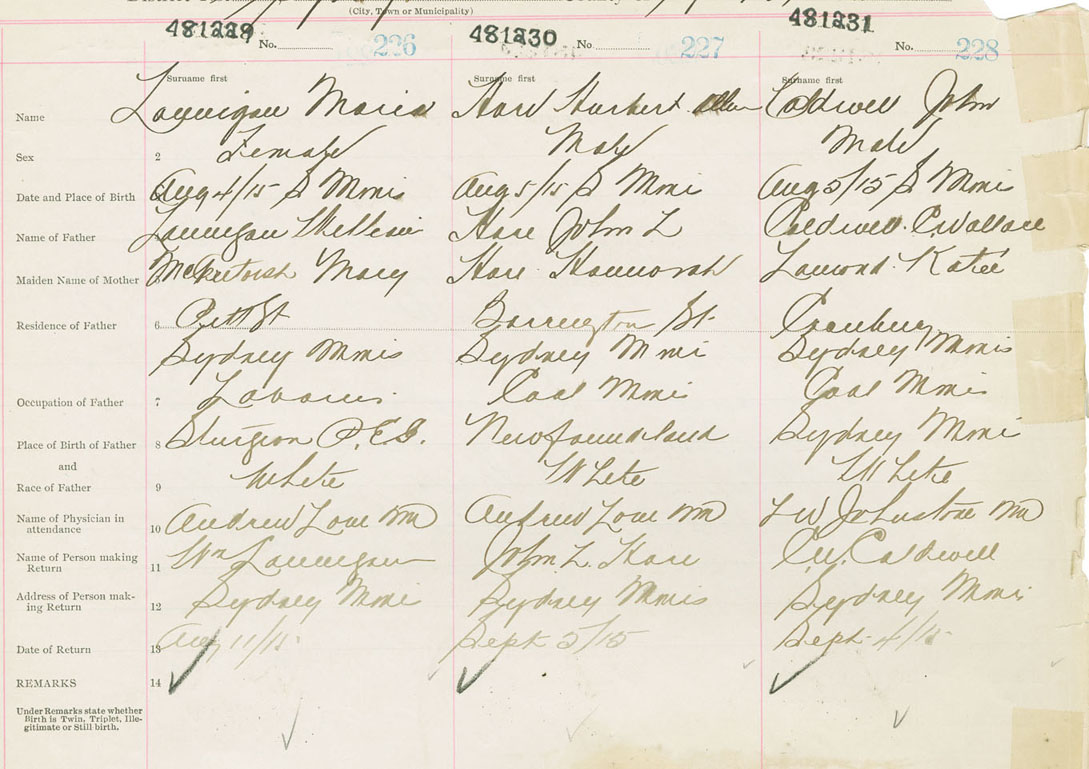 (City, Town or Municipality)
481229 No. 226 481230 No 227 481231 No. 228
Surname first Surname first Surname first
Name Maria Hare Herbert Caldwell John
Sex 2 Female Male Male
Date and Place of Birth Aug 4/15 S Mines Aug 5/15 S Mines Aug 5/15 S Mines
Name of Father William Hare John L Caldwell C Wallace
Maiden Name of Mother McIntosh Mary Hare Lamond Katie
Residence of Father 6 Pitt St Barrington St.
Sydney Mines Sydney Mines Sydney Mines
Occupation of Father 7 Coal Coal
Place of Birth of Father 8 Sturgeon P.E.I. Newfoundland Sydney Mines
and
Race of Father 9 White White White
Name of Physician in
attendance 10 Andrew Love MD Andrew Love MD L W Johnstone MD
Name of Person making
Return 11 Wm John L. Hare C.W. Caldwell
Address of Person mak-
ing Return 12 Sydney Mines Sydney Mines Sydney Mines
Date of Return 13 Aug 11/15 Sept 5/15 Sept 4/15
REMARKS 14
Under Remarks state whether
Birth is Twin, Triplet, Ille-
gitimate or Still-birth.